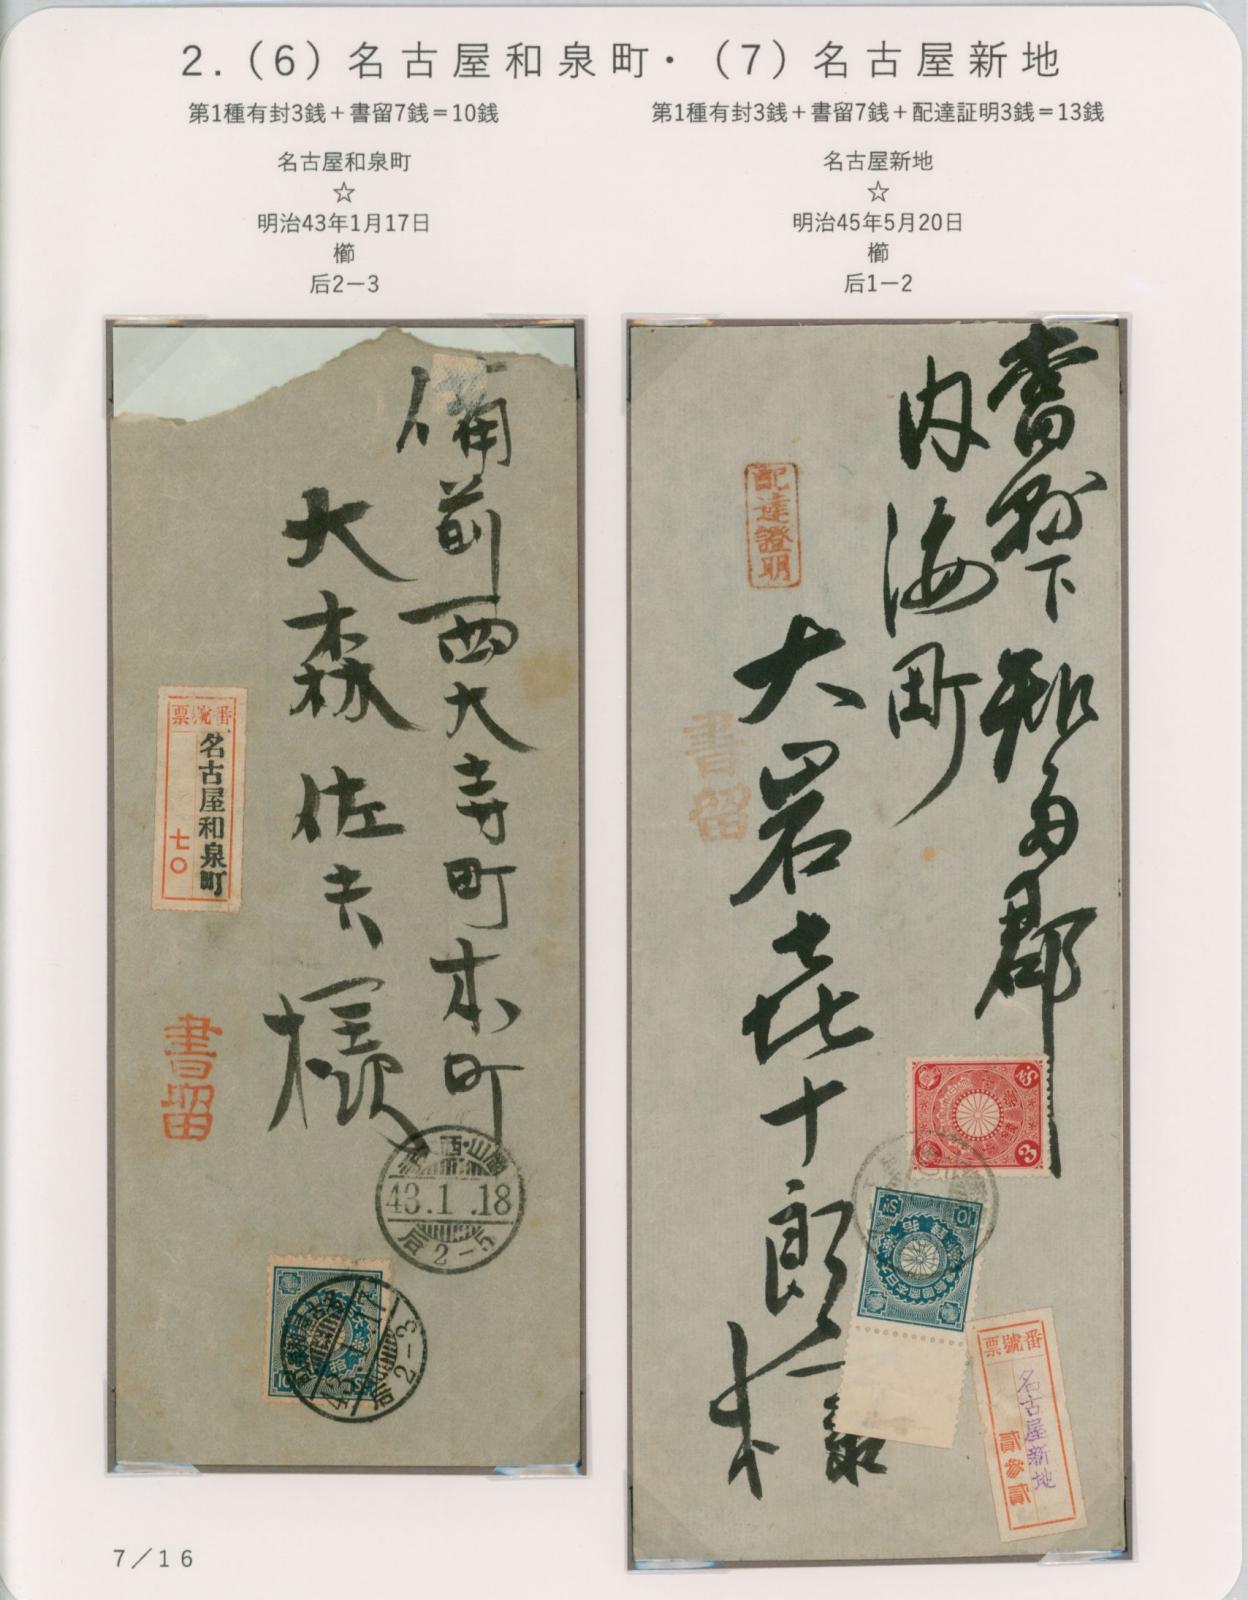 2.(6)名古屋和泉町・(7)名古屋新地
第1種有封3銭+書留7銭=10銭
名古屋和泉町
☆
明治43年1月17日
櫛
后2-3
第1種有封3銭+書留7銭+配達証明3銭=13銭
名古屋新地
☆
明治45年5月20日
櫛
后1-2
備前西大寺町本町
大森佐夫様
番號票
名古屋和泉町
七〇
書留
43.1.18
后2-5
后2-3
當縣下知多郡
内海町
大岩喜十郎様
配達證明
書留
番號票
名古屋新地
貳参貳
7/16